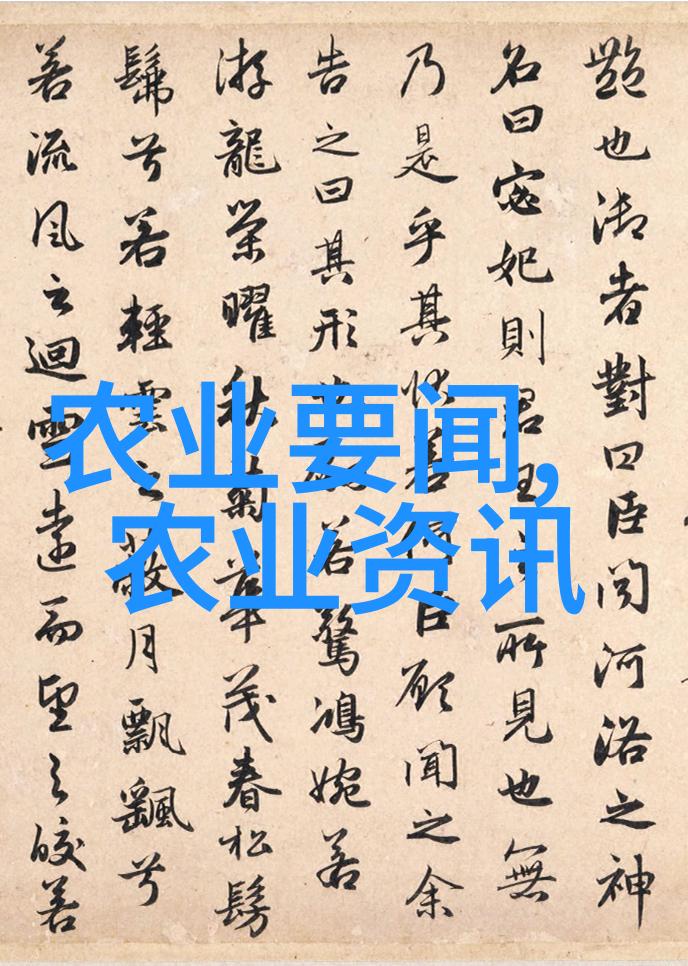 艷也御者對曰臣聞河洛之神
名曰宓妃則君王之所見也無
乃是乎其狀若何臣願聞之余
告之曰其形若驚鴻婉若
游龍榮曜秋菊華茂春松髣
髴兮若輕雲之蔽月飄颻兮
若流風之迴雪遠而望之皎若
农业要闻,
农业资讯